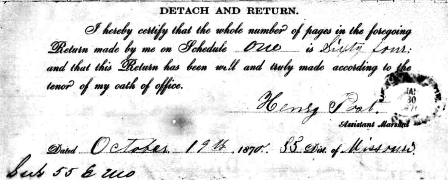 DETACH AND RETURN.
I hereby certify that the whole number of pages in the foregoing
Return made by me on Schedule One is Sixty four;
and that this Return has been well and truly made according to the
tenor of my oath of office.
Henry Post,
Assistant Marshal
Dated October 19th 1870. 33 Dist. of Missouri
Sub 55 E Mo
JAN
30